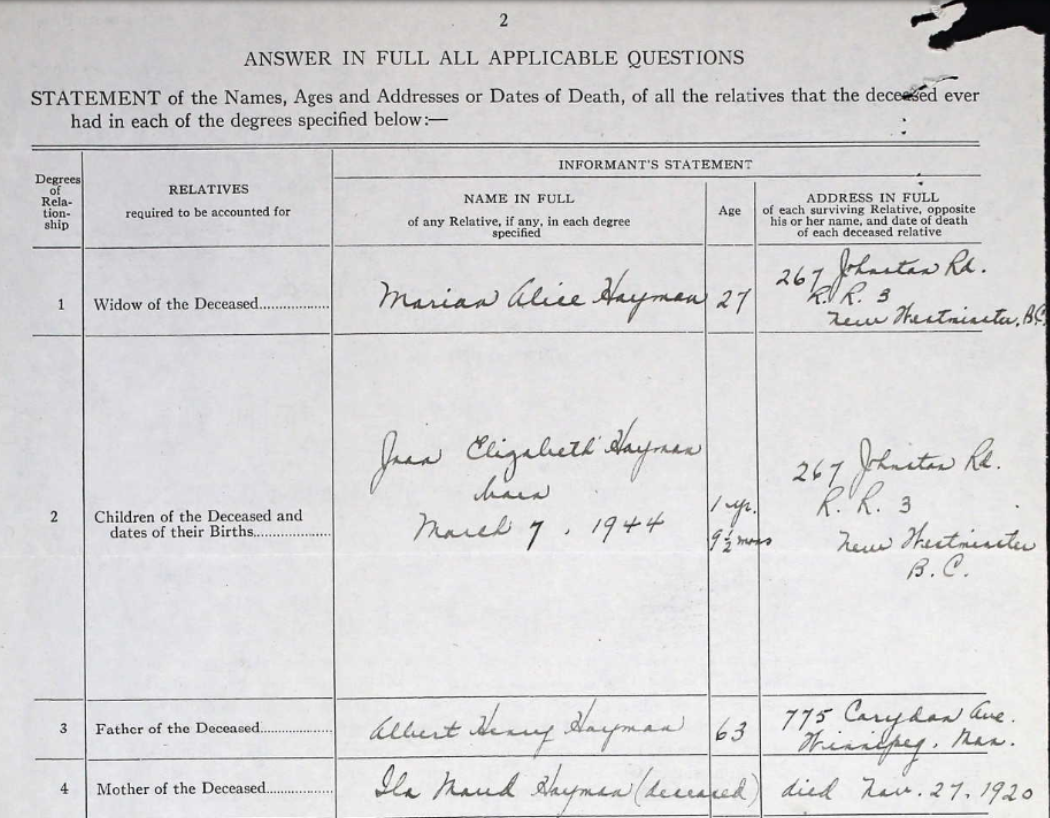 2
ANSWER IN FULL ALL APPLICABLE QUESTIONS
STATEMENT of the Names, Ages and Addresses or Dates of Death, of all the relatives that the deceased ever
had in each of the degrees specified below:—
Degrees
of
Rela-
tion-
ship
RELATIVES
required to be accounted for
INFORMANT'S STATEMENT
NAME IN FULL
of any Relative, if any, in each degree
specified
Age
ADDRESS IN FULL
of each surviving Relative, opposite
his or her name, and date of death
of each deceased relative
1
Widow of the Deceased
Marian Alice Hayman
27
267 Johnston Rd.
R. R. 3
New Westminster, B.C.
2
Children of the Deceased and
dates of their Births
Joan Elizabeth Hayman
born
March 7, 1944
1 yr.
9½ mons
267 Johnston Rd.
R. R. 3
New Westminster
B. C.
3
Father of the Deceased
Albert Henry Hayman
63
775 Corydon Ave.
Winnipeg, Man.
4
Mother of the Deceased
Ila Maud Hayman (deceased)
died Nov. 27, 1920